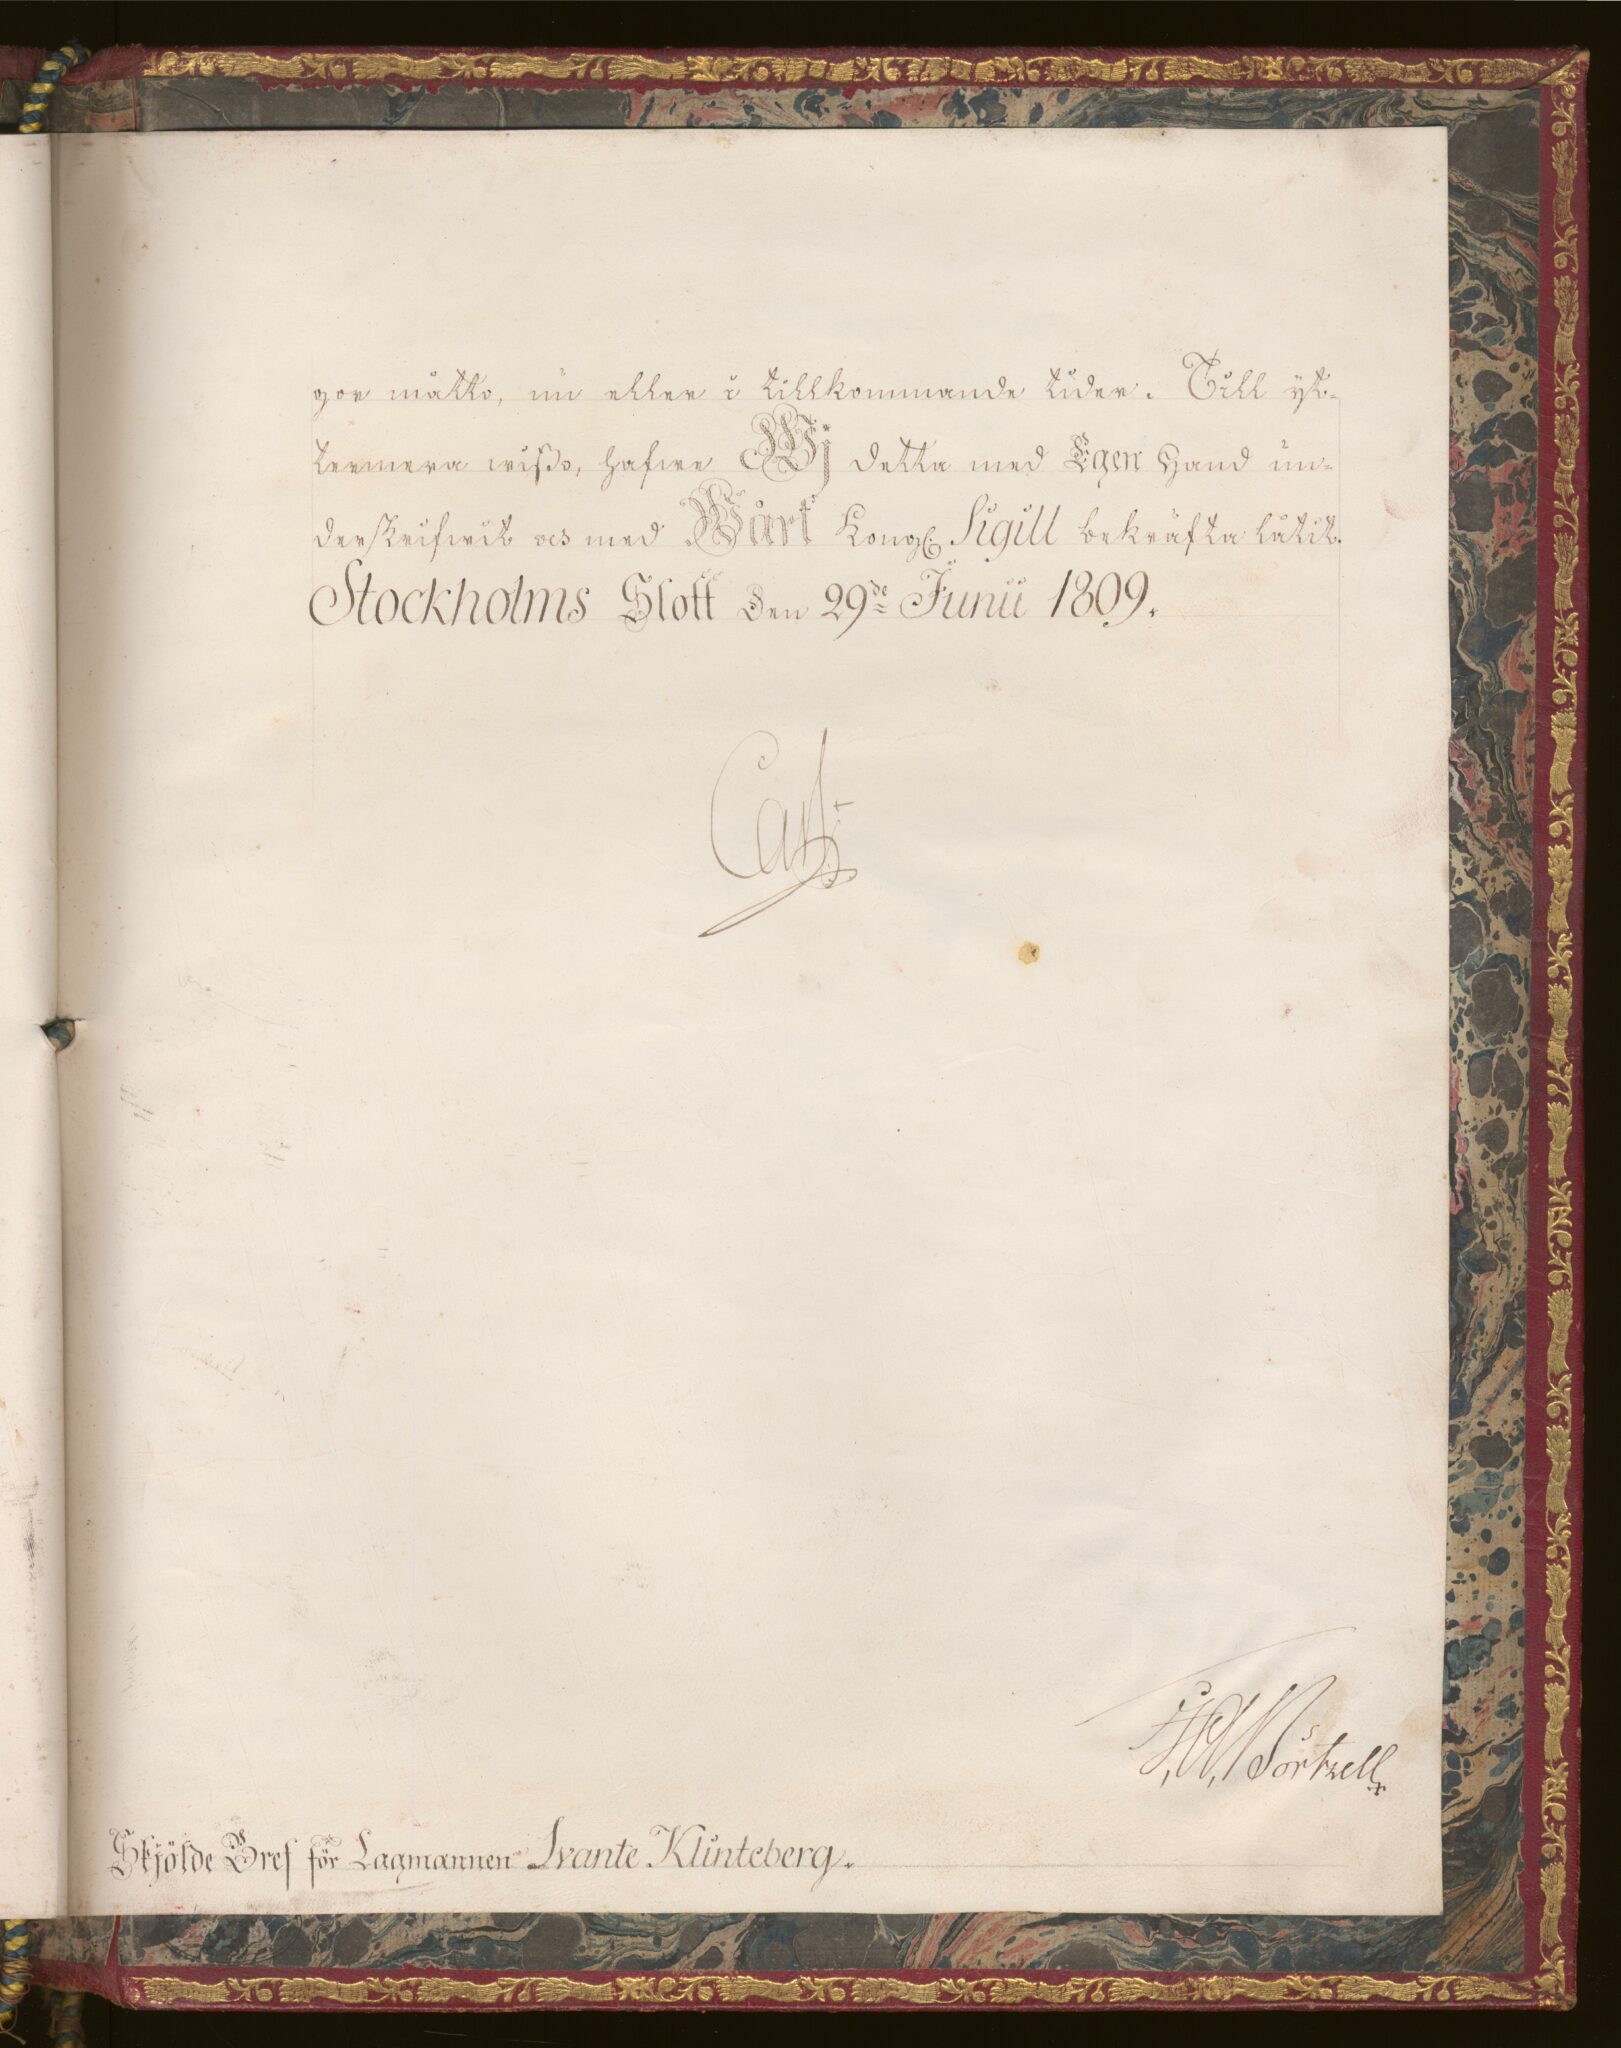 gor måtto, nu eller i tillkommande tider. Till yt-
termera wißo, hafwe Wj detta med Egen Hand un-
derskrifwit och med Wårt Kongl. Sigill bekräfta låtit.
Stockholms Slott den 29de Junii 1809.
Carl
Skjölde Bref för Lagmannen Svante Klinteberg.